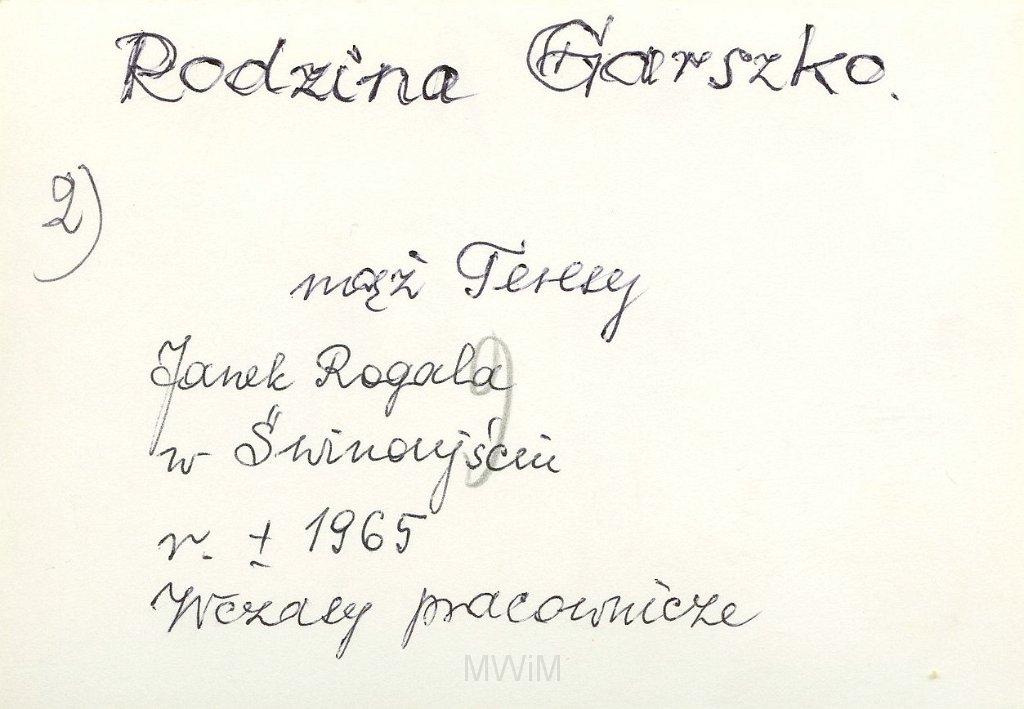 Rodzina Garszko.
2)
mąż Teresy
Janek Rogala
w Świnoujściu
r. ± 1965
Wczasy pracownicze
MWiM